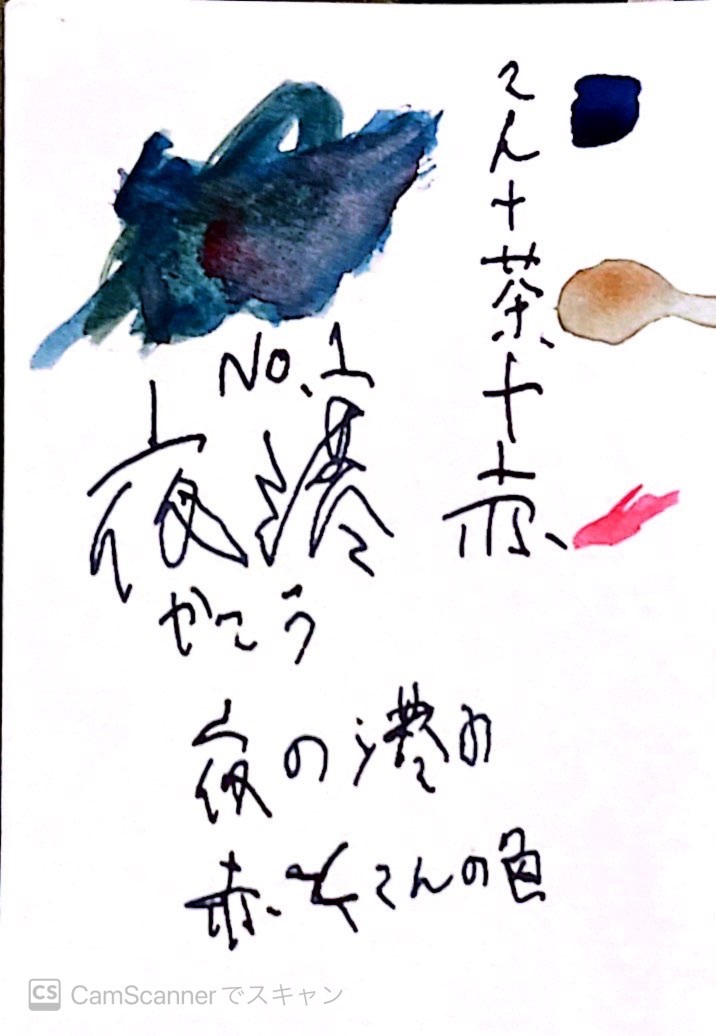 こん十茶十赤
No.1
夜港
やこう
夜の港の
赤とこんの色
CS CamScannerでスキャン